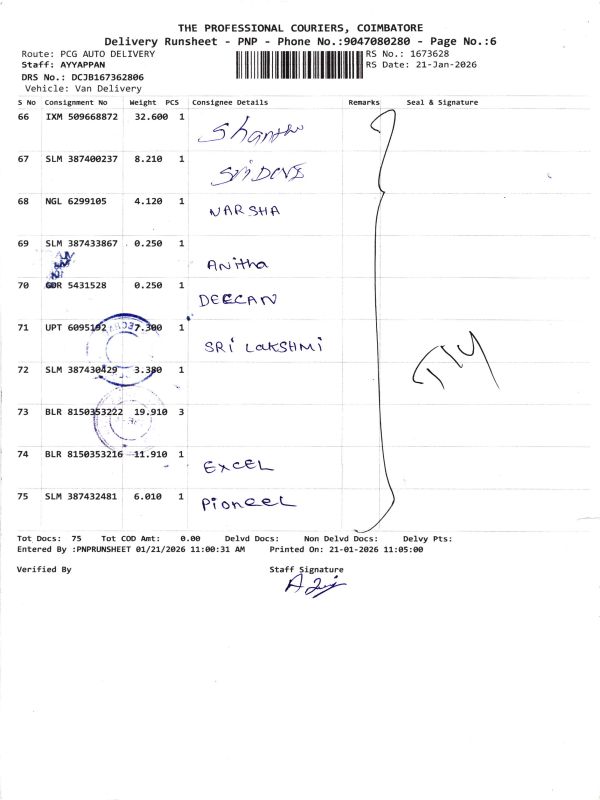 THE PROFESSIONAL COURIERS, COIMBATORE
Delivery Runsheet - PNP - Phone No.:9047080280 - Page No.:6
Route: PCG AUTO DELIVERY
RS No.: 1673628
Staff: AYYAPPAN
RS Date: 21-Jan-2026
DRS No.: DCJB167362806
Vehicle: Van Delivery
S No Consignment No Weight PCS Consignee Details Remarks Seal & Signature
66 IXM 509668872 32.600 1
67 SLM 387400237 8.210 1
SriDEVI
68 NGL 6299105 4.120 1
VARSHA
69 SLM 387433867 0.250 1
Anitha
70 GDR 5431528 0.250 1
DEECAN
71 UPT 6095192 7.300 1
SRi LakSHMi
72 SLM 387430429 3.380 1
73 BLR 8150353222 19.910 3
74 BLR 8150353216 11.910 1
EXCEL
75 SLM 387432481 6.010 1
PioneeL
Tot Docs: 75 Tot COD Amt: 0.00 Delvd Docs: Non Delvd Docs: Delvy Pts:
Entered By :PNPRUNSHEET 01/21/2026 11:00:31 AM Printed On: 21-01-2026 11:05:00
Verified By Staff Signature